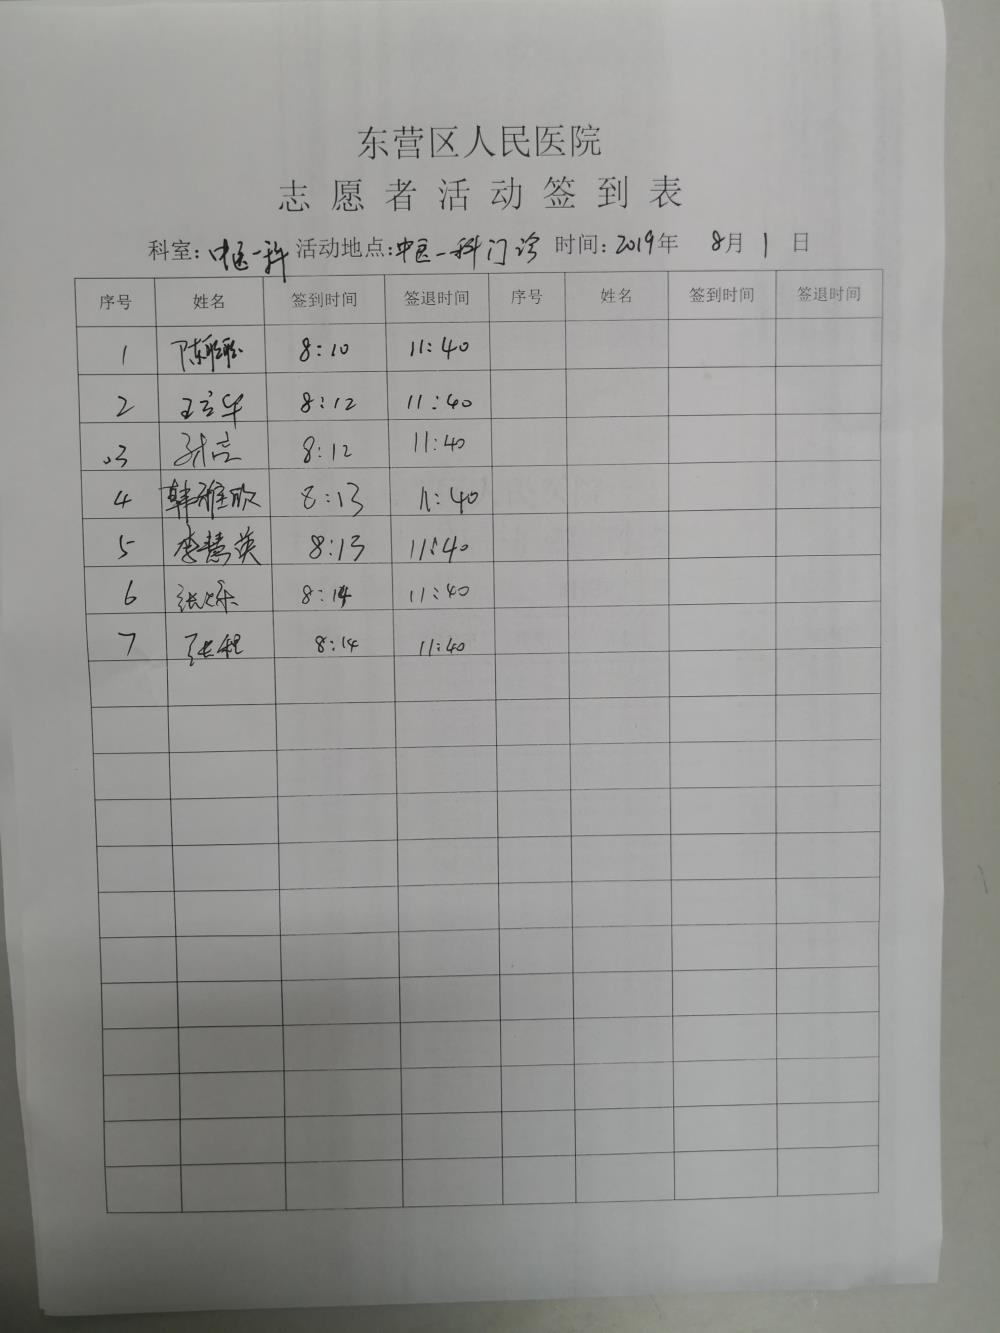 东营区人民医院
志愿者活动签到表
科室:中医一科 活动地点:中医一科门诊 时间:2019年 8月 1 日
序号 姓名 签到时间 签退时间 序号 姓名 签到时间 签退时间
1 陈聪聪 8:10 11:40
2 王立华 8:12 11:40
3 8:12 11:40
4 韩雅欣 8:13 11:40
5 李慧英 8:13 11:40
6 张 8:14 11:40
7 张程 8:14 11:40